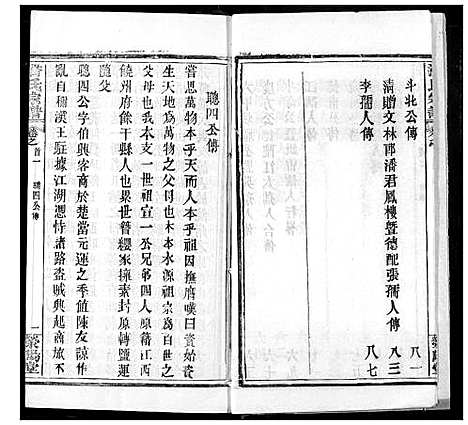 斗北公傳 八一
清贈文林郎潘君鳳樓暨德配張孺人傳 八三
李孺人傳 八七
榮陽堂
聰四公傳
嘗思萬物本乎天而人本乎祖因撫膺嘆曰資始資
生天地為萬物之父母也木本水源祖宗為百世之
父母也我本支一世祖宣一公兄弟四人原籍江西
饒州府餘干縣人也累世簪纓家擁素封原轉鹽運
聰四公字伯與客商於楚當元運之季值陳友諒作
亂自稱漢王駐據江湖憑恃諸路盜賊興起商旅不
卷之首一 聰四公傳 一
榮陽堂